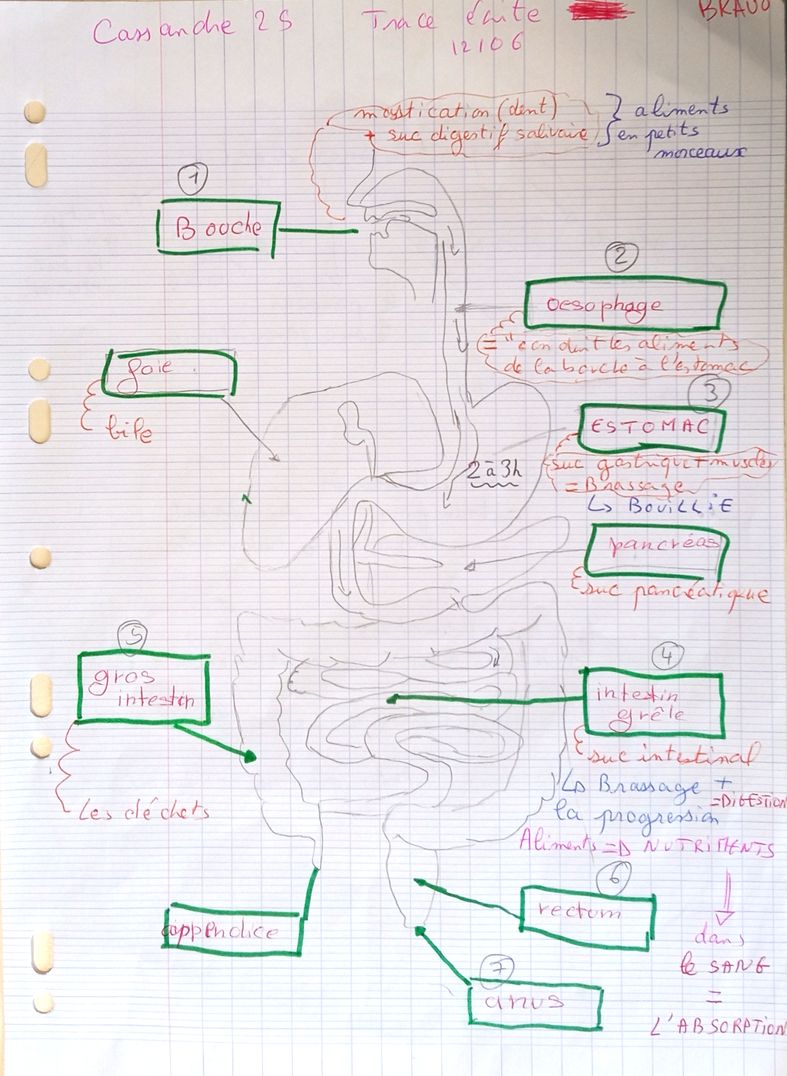 Cassandre 2S
Trace écrite
12/06
BRAVO
mastication (dent)
+ suc digestif salivaire
aliments
en petits
morceaux
1
Booche
2
oesophage
= "conduit les aliments
de la bouche à l'estomac
foie
bile
3
ESTOMAC
suc gastrique + muscles
= Brassage
↳ BOUILLIE
2 à 3h
pancréas
suc pancréatique
5
gros
intestin
Les déchets
4
intestin
grêle
suc intestinal
↳ Brassage +
la progression
= DIGESTION
Aliments => NUTRIMENTS
dans
le SANG
=
L'ABSORPTION
appendice
6
rectum
7
anus